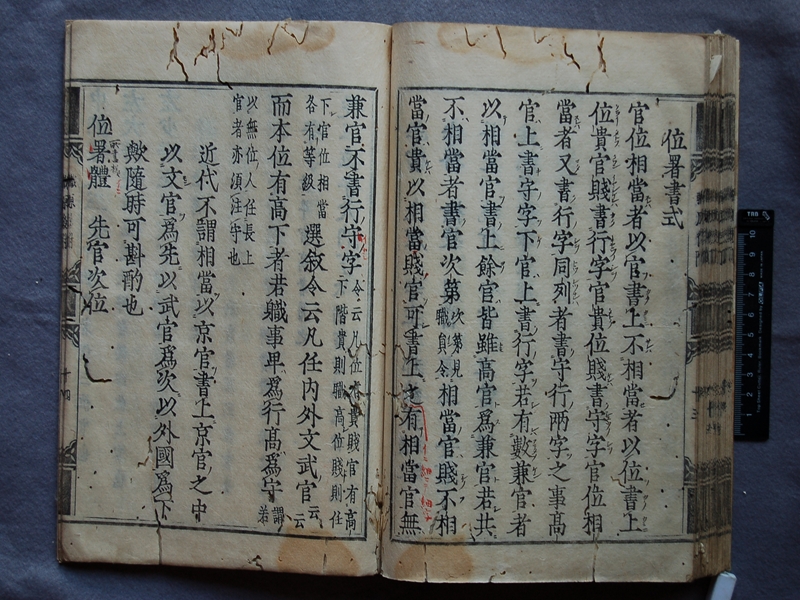 位署書式
官位相當者以官書上不相當者以位書上
位貴官賤書行字官貴位賤書守字官位相
當者又書行字同列者書守行兩字之事髙
官上書守字下官上書行字若有數兼官者
以相當官書上餘官皆雖高官爲兼官若共
不相當者書官次第次第見職負令相當官賤不相
當官貴以相當賤官可書上之有相當官無
兼官不書行守字令云凡位有貴賤官有高下階貴則職高位賤則任
下官位相當各有等級選叙令云凡任内外文武官云云
而本位有高下者若職事卑爲行髙爲守謂若
以無位人任長上官者亦須注守也
近代不謂相當以京官書上京官之中
以文官爲先以武官爲次以外國爲下
歟隨時可斟酌也
位署體 先官次位
十四